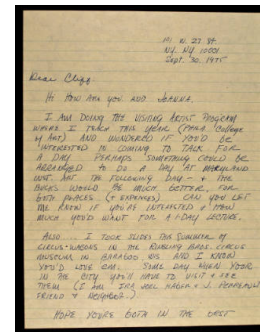 141 W. 27 St
NY. NY 10001.
Sept. 30, 1975
Dear Clegg:
Hi How Are you and JoAnna.
I am doing the Visiting Artist Program
where I teach this year (Phila. College
of Art) and wondered if you'd be
interested in coming to talk for
a day. Perhaps something could be
arranged to do a day at Maryland
Inst. Art the following day - & the
bucks would be much better, for
both places (& expenses) Can you let
me know if you're interested & how
much you'd want for a 1-day lecture.
Also - I took slides this summer of
circus-wagons in the Ringling Bros. circus
museum in Baraboo, Wis. and I know
you'd love em. Some day when your
in the city you'll have to visit & see
them (I am Ira Joel Haber's & J. Perlman
friend & neighbor.)
Hope you're both in the best